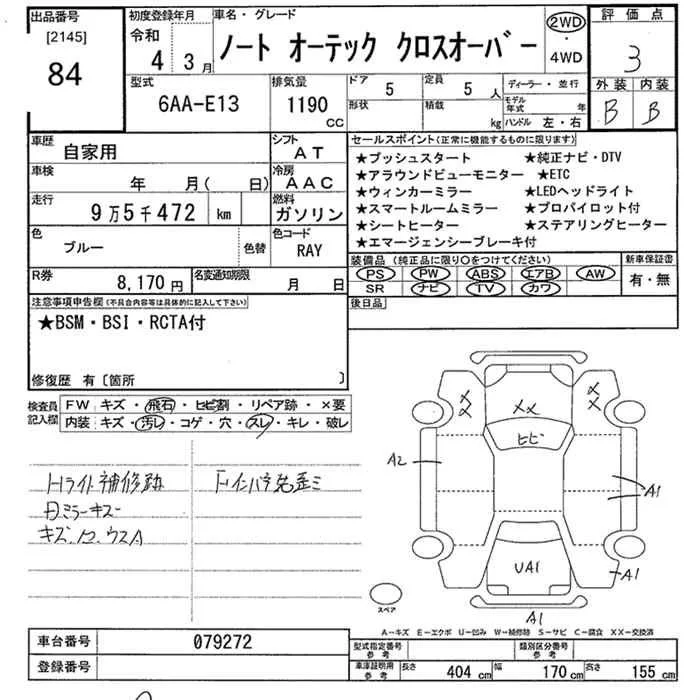 出品番号
[2145]
84
初度登録年月
令和 4 3月
車名・グレード
ノート オーテック クロスオーバー
2WD
・
4WD
評価点
3
外装 内装
B B
型式
6AA-E13
排気量
1190 CC
ドア 5
形状
定員 5 人
積載 kg
ディーラー・並行
モデル年式 年
ハンドル 左・右
車歴
自家用
シフト
AT
車検
年 月( 日)
冷房
AAC
走行
9万5千472 km
燃料
ガソリン
色
ブルー
色替
色コード
RAY
R券
8,170円
名変通知期限
月 日
セールスポイント(正常に機能するものに限ります)
★プッシュスタート ★純正ナビ・DTV
★アラウンドビューモニター ★ETC
★ウィンカーミラー ★LEDヘッドライト
★スマートルームミラー ★プロパイロット付
★シートヒーター ★ステアリングヒーター
★エマージェンシーブレーキ付
装備品(純正品に限り○をつけてください)
PS PW ABS エアB AW
SR ナビ TV カワ
新車保証書
有・無
後日品
注意事項申告欄(不具合内容等は具体的に記入して下さい)
★BSM・BSI・RCTA付
修復歴 有〔箇所 〕
検査員
記入欄
FW キズ・飛石・ヒビ割・リペア跡・×要
内装 キズ・汚レ・コゲ・穴・スレ・キレ・破レ
Hライト補修跡
ミラーキズ
キズ
XX
XX
XX
ヒビ
A2
A1
UA1
A1
A1
スペア
A-キズ E-エクボ U-凹み W-補修跡 S-サビ C-腐食 XX-交換済
車台番号
079272
登録番号
型式指定番号
参考
類別区分番号
参考
車庫証明用
参考
長さ 404 cm 幅 170 cm 高さ 155 cm